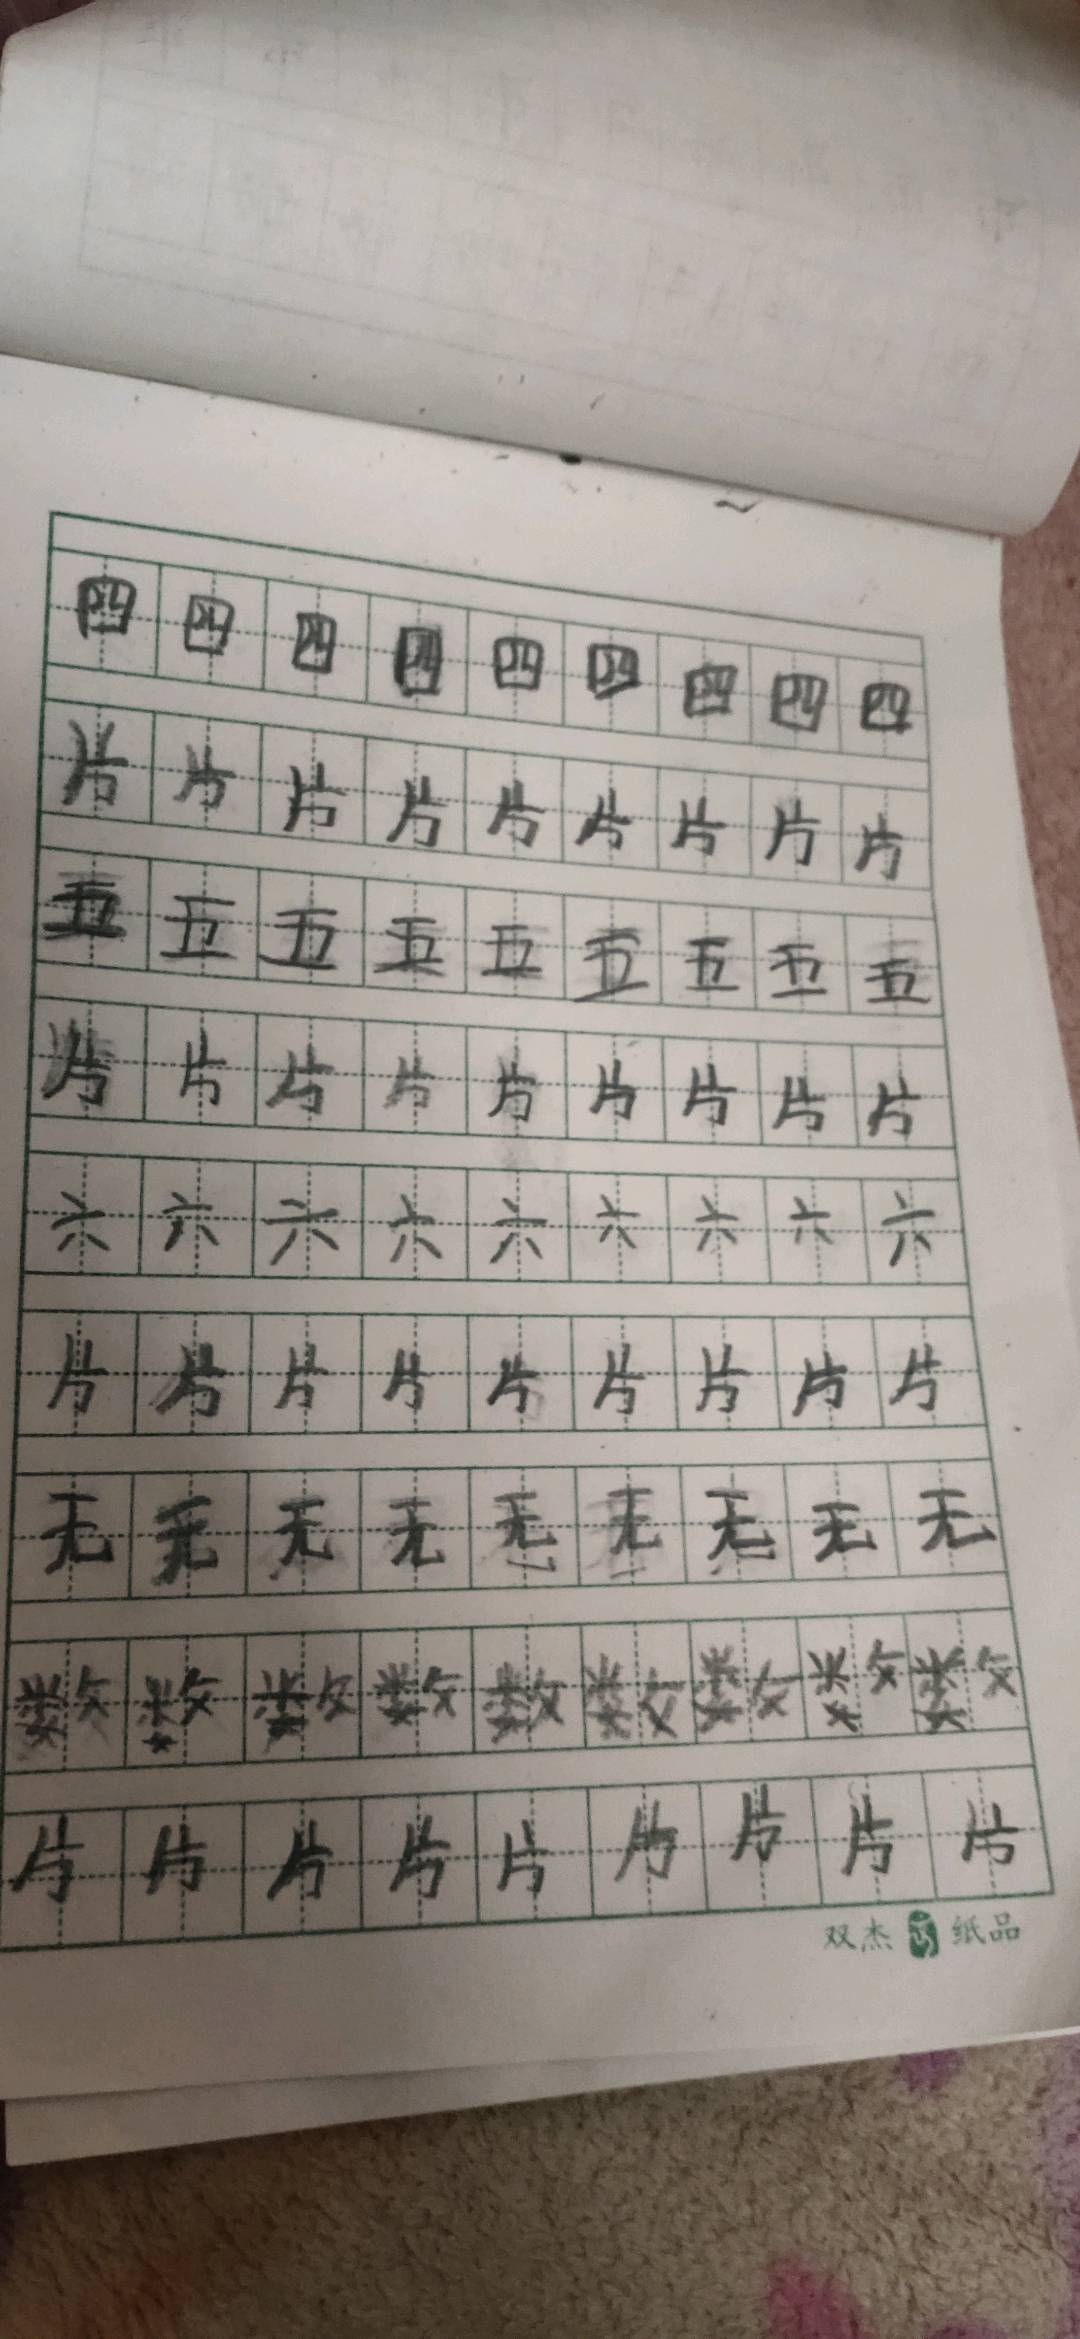 四四四四四四四四四
片片片片片片片片片
五五五五五五五五五
片片片片片片片片片
六六六六六六六六六
片片片片片片片片片
无无无无无无无无无
数数数数数数数数数
片片片片片片片片片
双杰 纸品